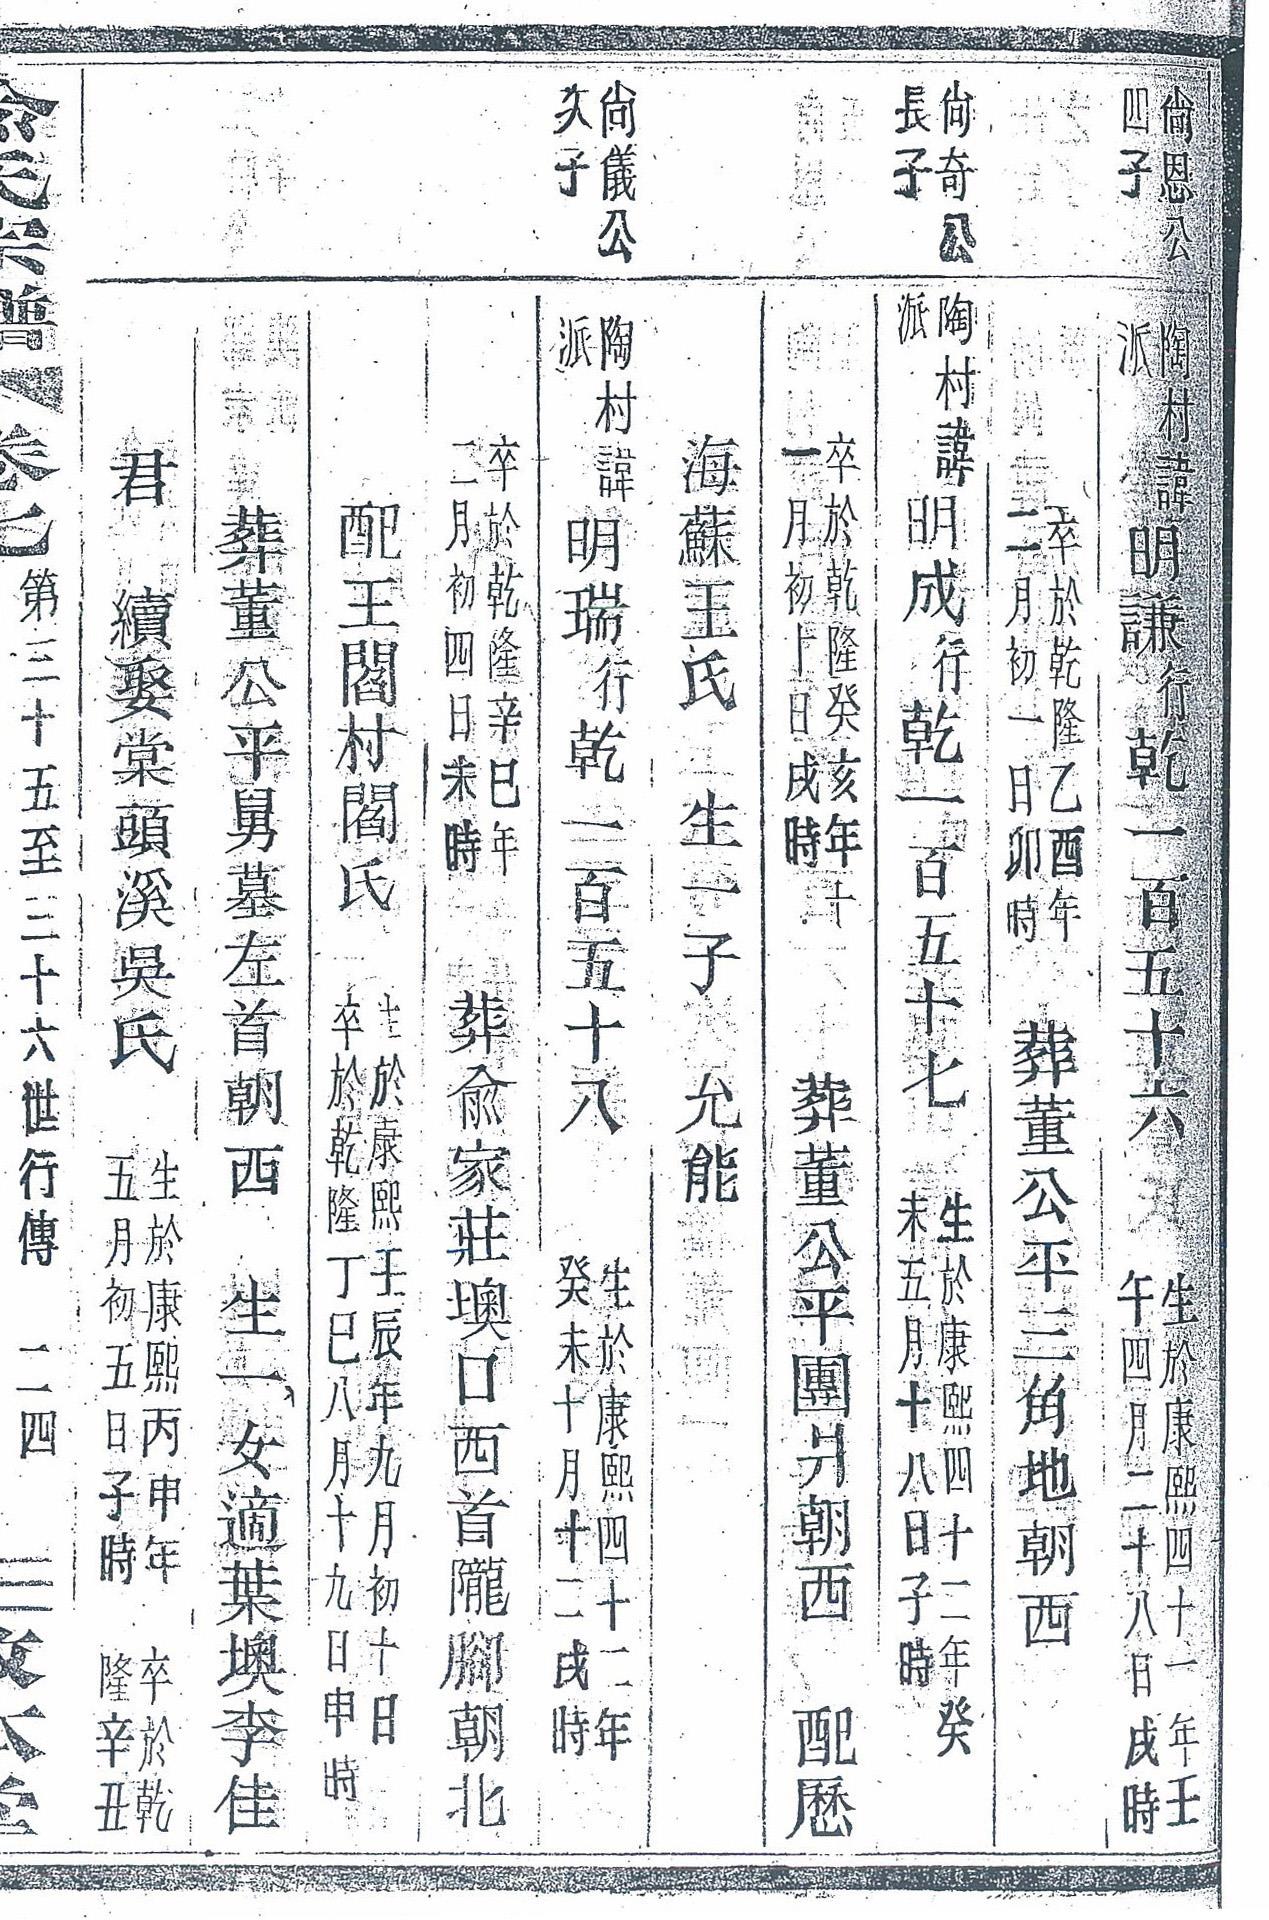 尙恩公
四子
陶村諱明謙行乾一百五十六 生於康熙四十一年壬
派 午四月二十八日戌時
卒於乾隆乙酉年
二月初一日卯時 葬董公平三角地朝西
尙奇公
長子
陶村諱明成行乾一百五十七 生於康熙四十二年癸
派 未五月十八日子時
卒於乾隆癸亥年十
一月初十日戌時 葬董公平團爿朝西 配歷
海蘇王氏 生一子 允能
尙儀公
久子
陶村諱明瑞行乾一百五十八 生於康熙四十二年
派 癸未十月十二戌時
卒於乾隆辛巳年
二月初四日未時 葬俞家莊墺口西首隴腳朝北
配王閻村閻氏 生於康熙壬辰年九月初十日
卒於乾隆丁巳八月十九日申時
葬董公平舅墓左首朝西 生一女適葉墺李佳
君 續娶棠頭溪吳氏 生於康熙丙申年
五月初五日子時 卒於乾
隆辛丑
氏宗譜 卷七 第三十五至三十六世行傳 二四 敦本堂